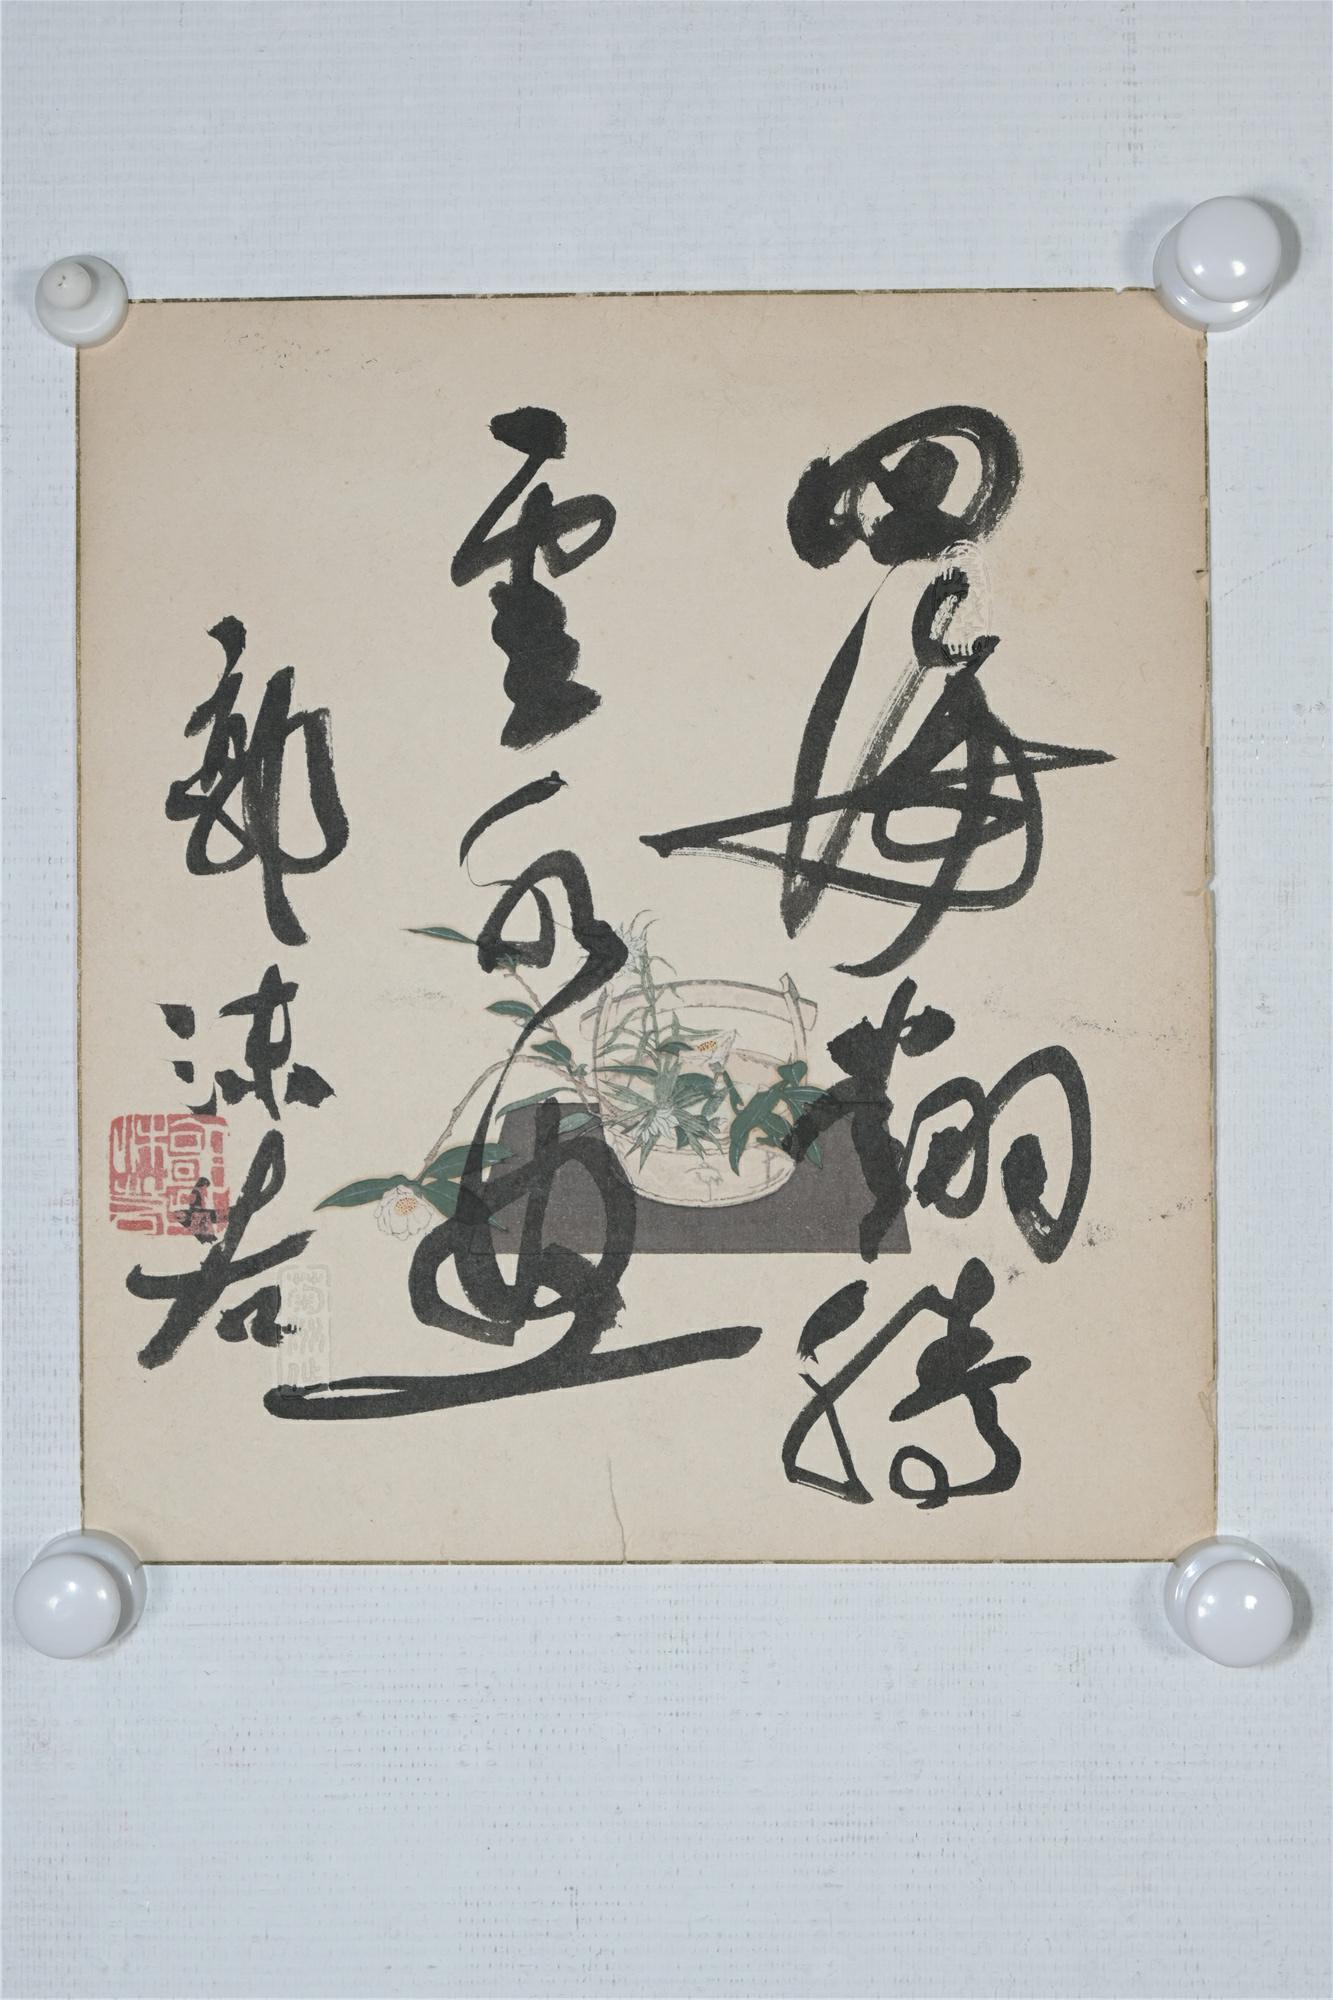 四海翻騰
雲水怒
郭沫若